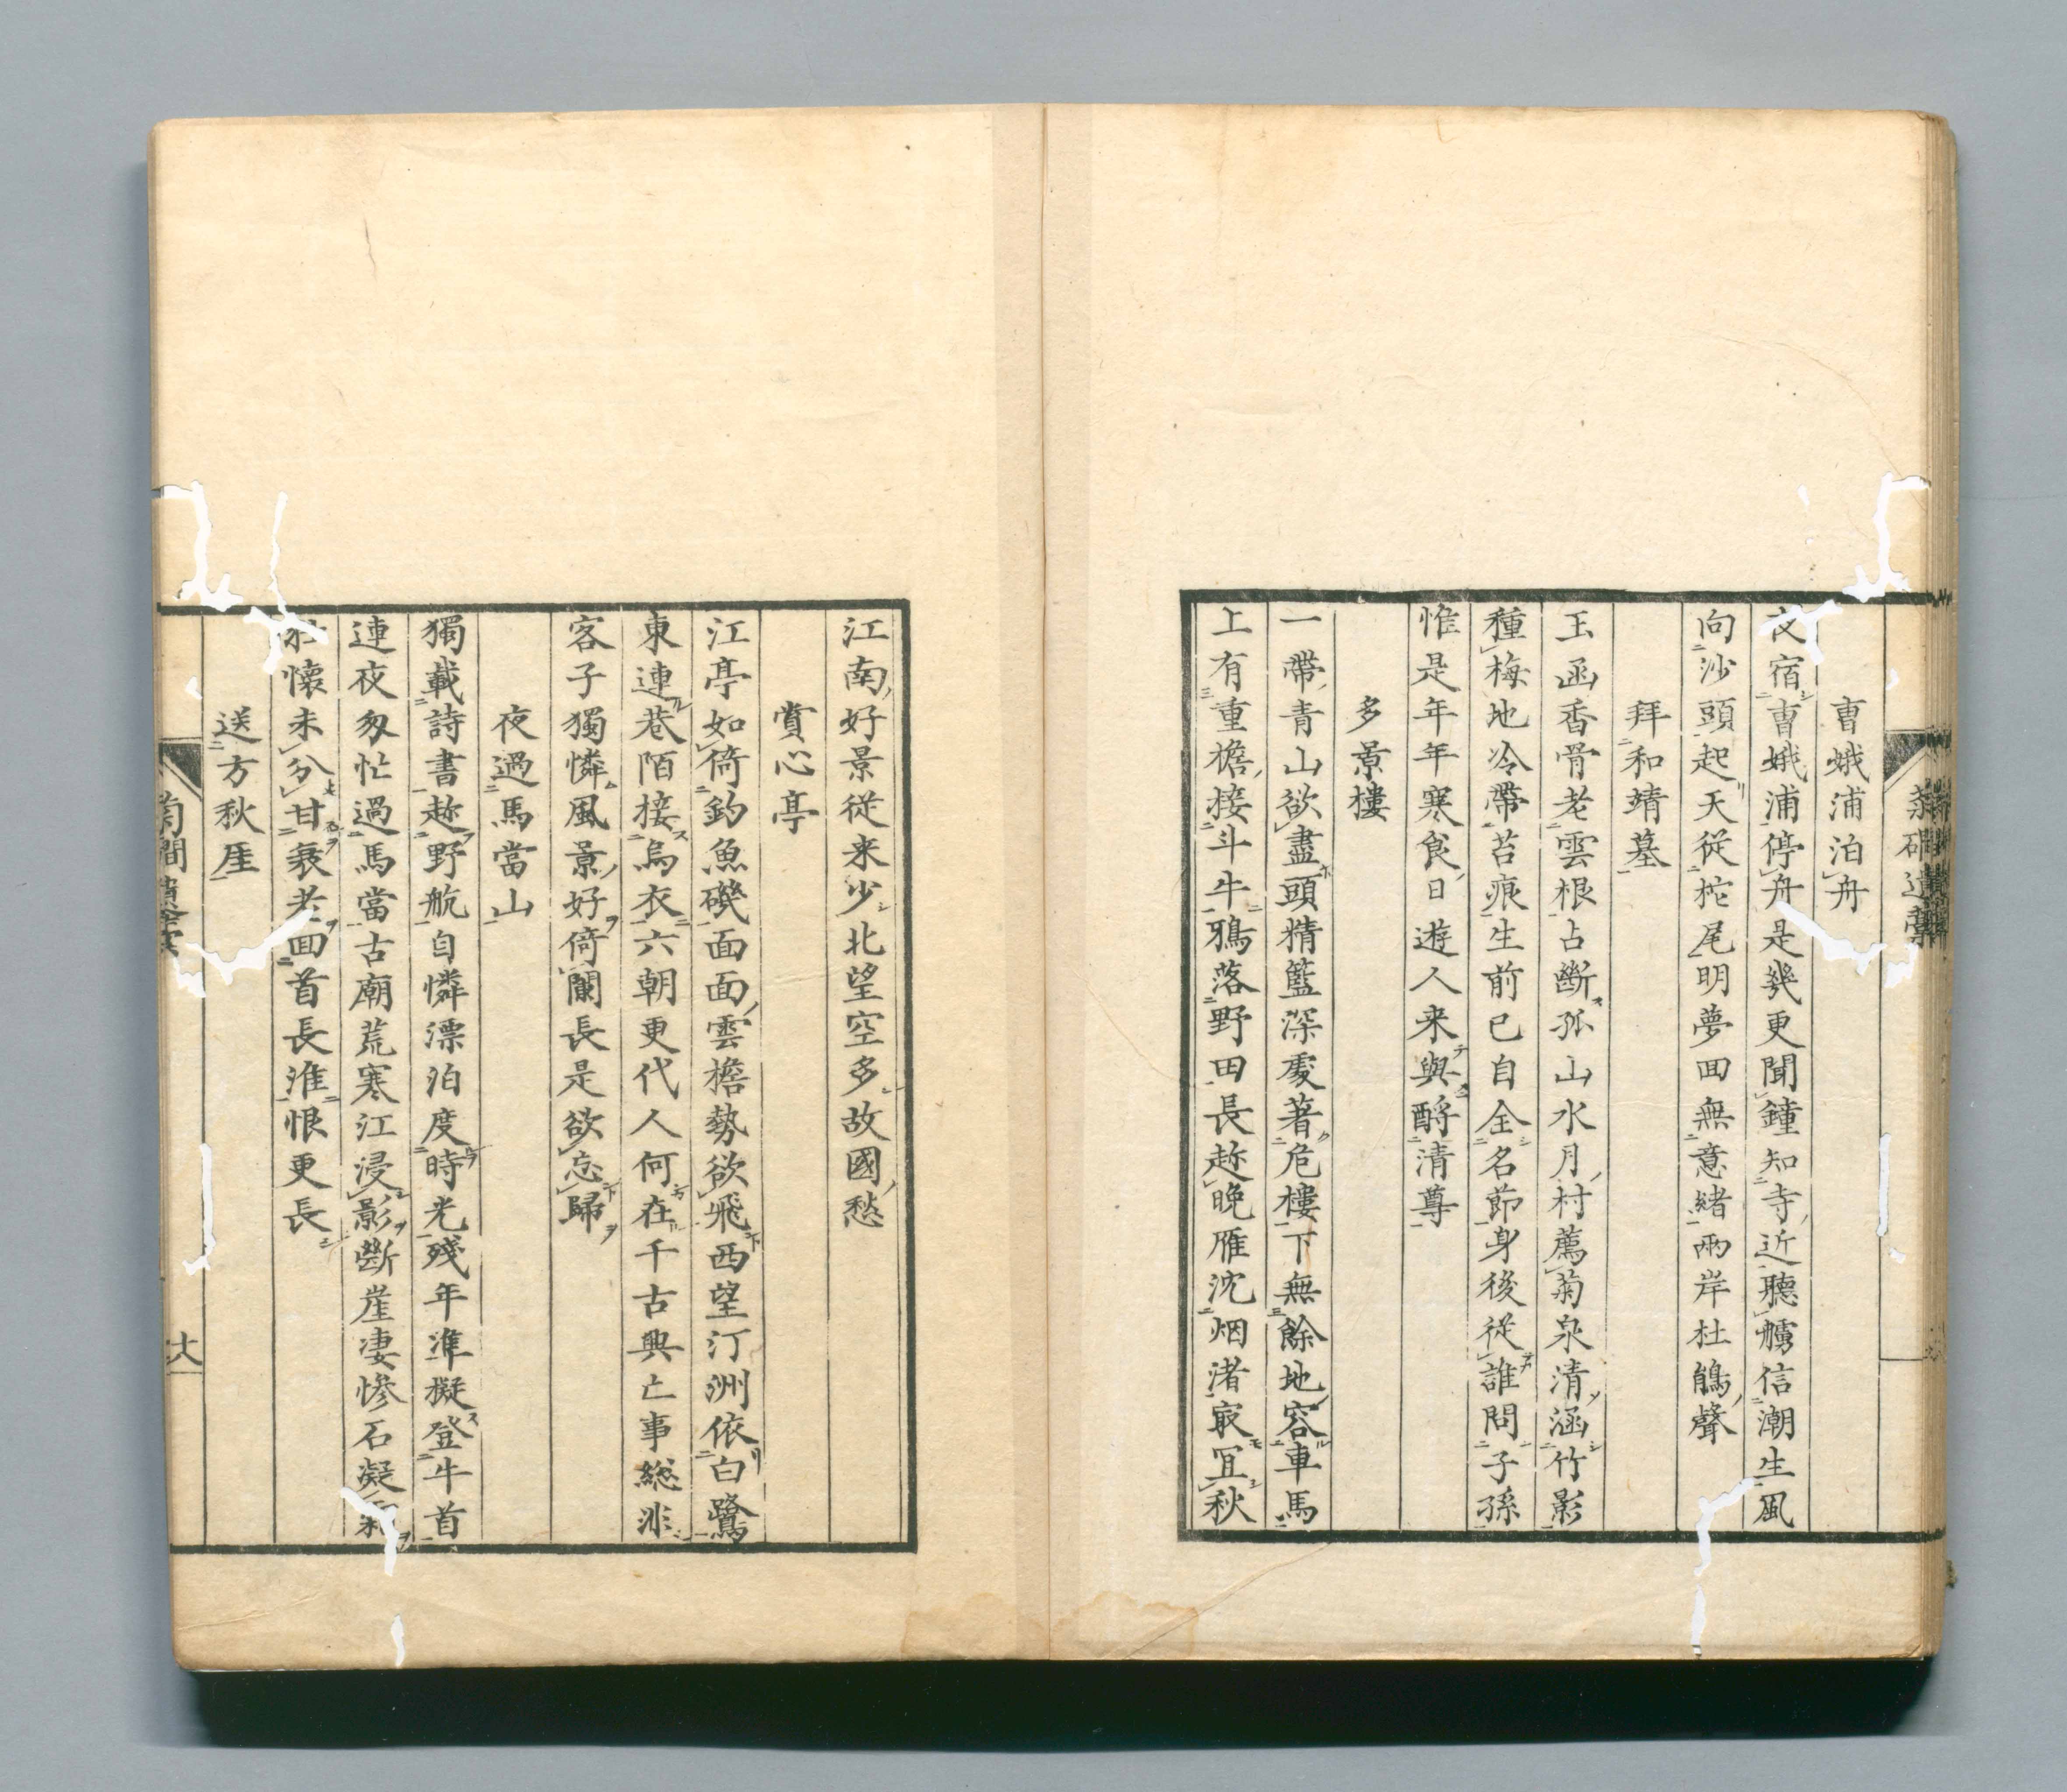 曺娥浦泊舟
夜宿曺娥浦停舟是幾更聞鐘知寺近聽艣信潮生風
向沙頭起天從柁尾明夢回無意緒兩岸杜鵑聲
拜和靖墓
玉函香骨老雲根占斷孤山水月村薦菊泉清涵竹影
種梅地冷帶苔痕生前已自全名節身後從誰問子孫
惟是年年寒食日遊人来與酹清尊
多景樓
一帶青山欲盡頭精籃深處著危樓下無餘地容車馬
上有重檐接斗牛鴉落野田長趂晚雁沈烟渚㝡冝秋
江南好景従来少北望空多故國愁
賞心亭
江亭如倚釣魚磯面面雲檐勢欲飛西望汀洲依白鷺
東連巷陌接烏衣六朝更代人何在千古興亡事総非
客子獨憐風景好倚闌長是欲忘歸
夜過馬當山
獨載詩書趂野航自憐漂泊度時光殘年準擬登牛首
連夜匆忙過馬當古廟荒寒江浸影斷崖凄慘石凝霜
壯懷未分甘衰老回首長淮恨更長
送方秋厓
菊磵遺藁
十六